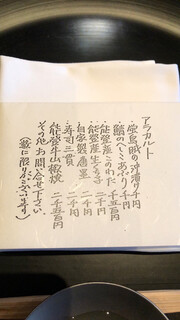 アラカルト
・蛍烏賊の沖漬け 千円
・鰭のへしこあぶり 千円
・能登産このわた 千五百円
・能登産生うに 二千円
・自家製唐墨 二千円
・寿司三貫 二千円
・能登牛山椒焼 二千五百円
その他お問合せ下さい
(数に限りがございます)